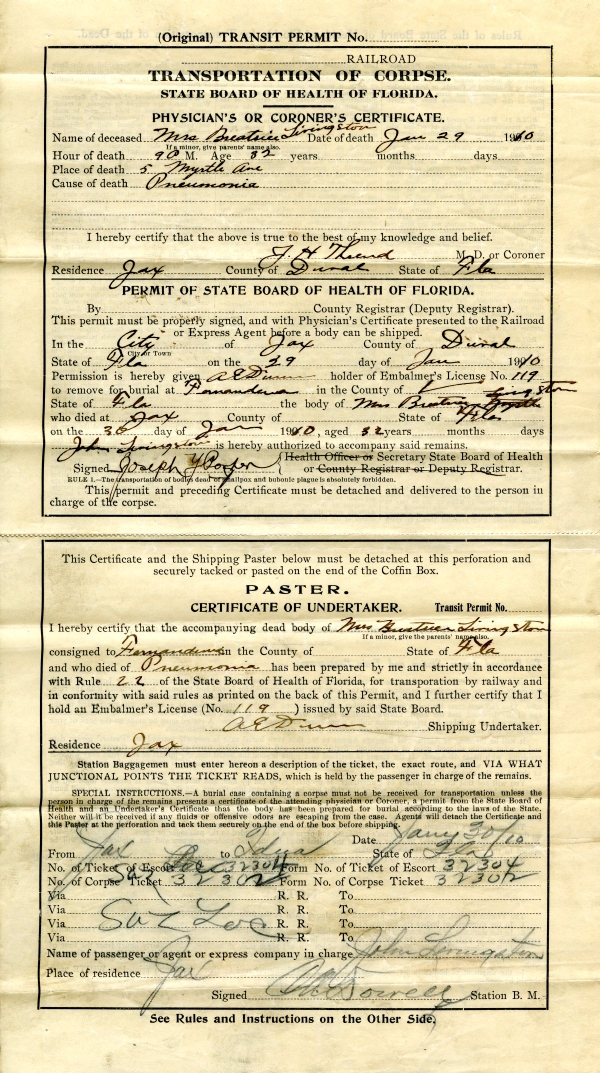 (Original) TRANSIT PERMIT No.
RAILROAD
TRANSPORTATION OF CORPSE.
STATE BOARD OF HEALTH OF FLORIDA.
PHYSICIAN'S OR CORONER'S CERTIFICATE.
Name of deceased Mrs Beatrice Livingston Date of death Jan 29 1910
If a minor, give parents' name also.
Hour of death 9 P M. Age 32 years months days
Place of death 5 Myrtle Ave
Cause of death Pneumonia
I hereby certify that the above is true to the best of my knowledge and belief.
J. H. M. D. or Coroner
Residence Jax County of Duval State of Fla
PERMIT OF STATE BOARD OF HEALTH OF FLORIDA.
By County Registrar (Deputy Registrar).
This permit must be properly signed, and with Physician's Certificate presented to the Railroad
or Express Agent before a body can be shipped.
In the City of Jax County of Duval
City or Town
State of Fla on the 29 day of Jan 1910
Permission is hereby given A E Dunn holder of Embalmer's License No. 119
to remove for burial at Fernandina in the County of
State of Fla the body of Mrs Beatrice Livingston
who died at Jax County of State of Fla
on the 30 day of Jan 1910, aged 32 years months days
John Livingston is hereby authorized to accompany said remains.
Signed Joseph Y Porter Health Officer or Secretary State Board of Health
or County Registrar or Deputy Registrar.
RULE 1.—The transportation of bodies dead of smallpox and bubonic plague is absolutely forbidden.
This permit and preceding Certificate must be detached and delivered to the person in
charge of the corpse.
This Certificate and the Shipping Paster below must be detached at this perforation and
securely tacked or pasted on the end of the Coffin Box.
PASTER.
CERTIFICATE OF UNDERTAKER. Transit Permit No.
I hereby certify that the accompanying dead body of Mrs Beatrice Livingston
If a minor, give the parents' name also.
consigned to Fernandina in the County of State of Fla
and who died of Pneumonia has been prepared by me and strictly in accordance
with Rule 22 of the State Board of Health of Florida, for transportation by railway and
in conformity with said rules as printed on the back of this Permit, and I further certify that I
hold an Embalmer's License (No. 119 ) issued by said State Board.
A E Dunn Shipping Undertaker.
Residence Jax
Station Baggagemen must enter hereon a description of the ticket, the exact route, and VIA WHAT
JUNCTIONAL POINTS THE TICKET READS, which is held by the passenger in charge of the remains.
SPECIAL INSTRUCTIONS.—A burial case containing a corpse must not be received for transportation unless the
person in charge of the remains presents a certificate of the attending physician or Coroner, a permit from the State Board of
Health and an Undertaker's Certificate that the body has been prepared for burial according to the laws of the State.
Neither will it be received if any fluids or offensive odors are escaping from the case. Agents will detach the Certificate and
this Paster at the perforation and tack them securely on the end of the box before shipping.
Date Jany 30/10
From Jax to State of Fla
No. of Ticket of Escort 32304 Form No. of Ticket of Escort 32304
No. of Corpse Ticket 32302 Form No. of Corpse Ticket 32302
Via R. R. To
Via R. R. To
Via R. R. To
Via R. R. To
Name of passenger or agent or express company in charge John Livingston
Place of residence Jax
Signed Station B. M.
See Rules and Instructions on the Other Side.